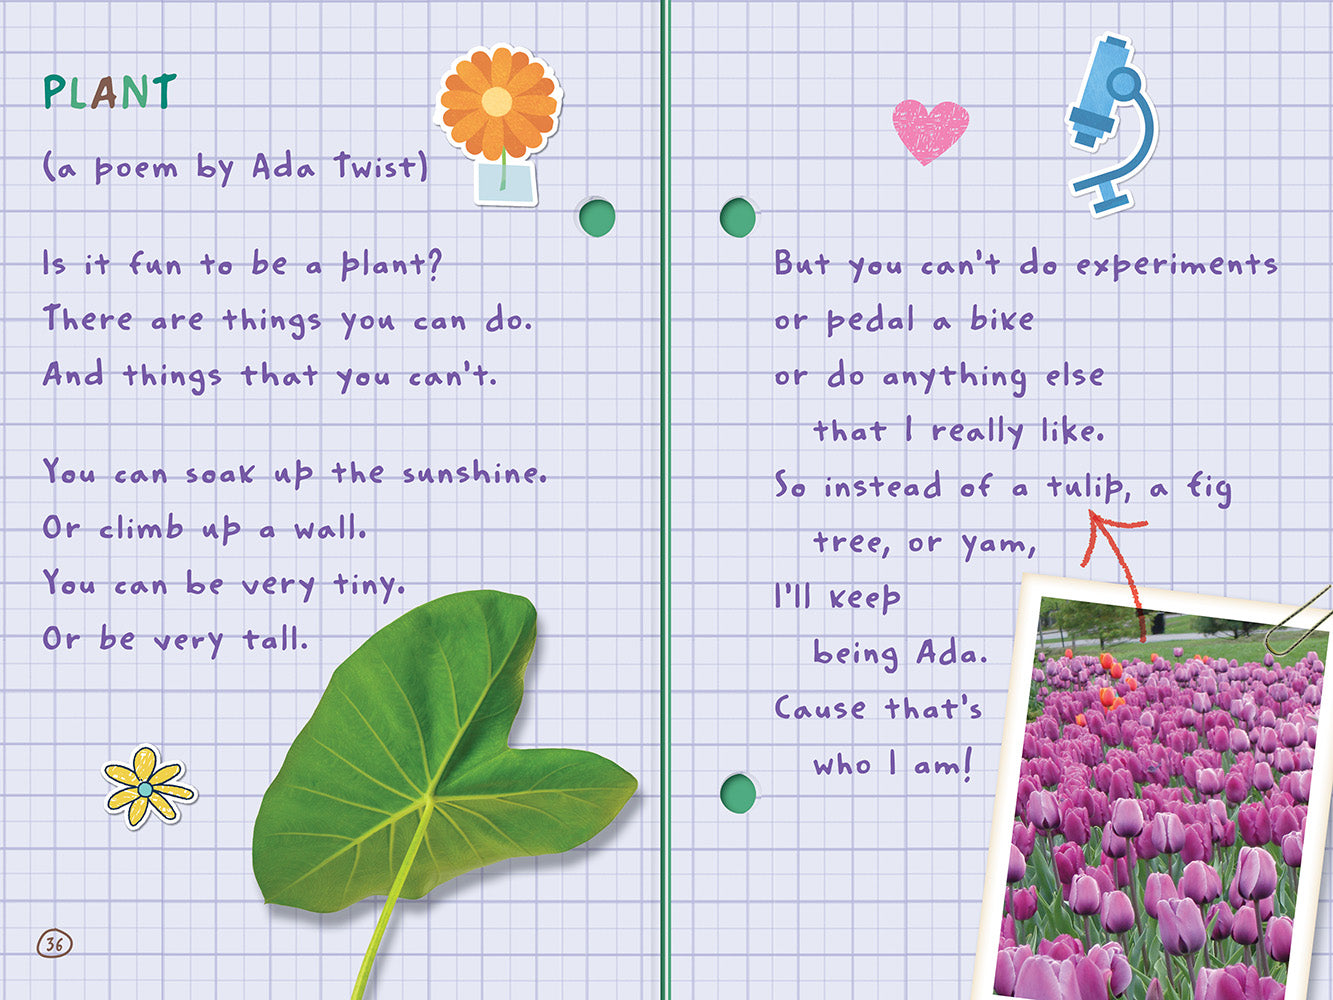 PLANT
(a poem by Ada Twist)
Is it fun to be a plant?
There are things you can do.
And things that you can't.
You can soak up the sunshine.
Or climb up a wall.
You can be very tiny.
Or be very tall.
36
But you can't do experiments
or pedal a bike
or do anything else
that I really like.
So instead of a tulip, a fig
tree, or yam,
I'll keep
being Ada.
Cause that's
who I am!